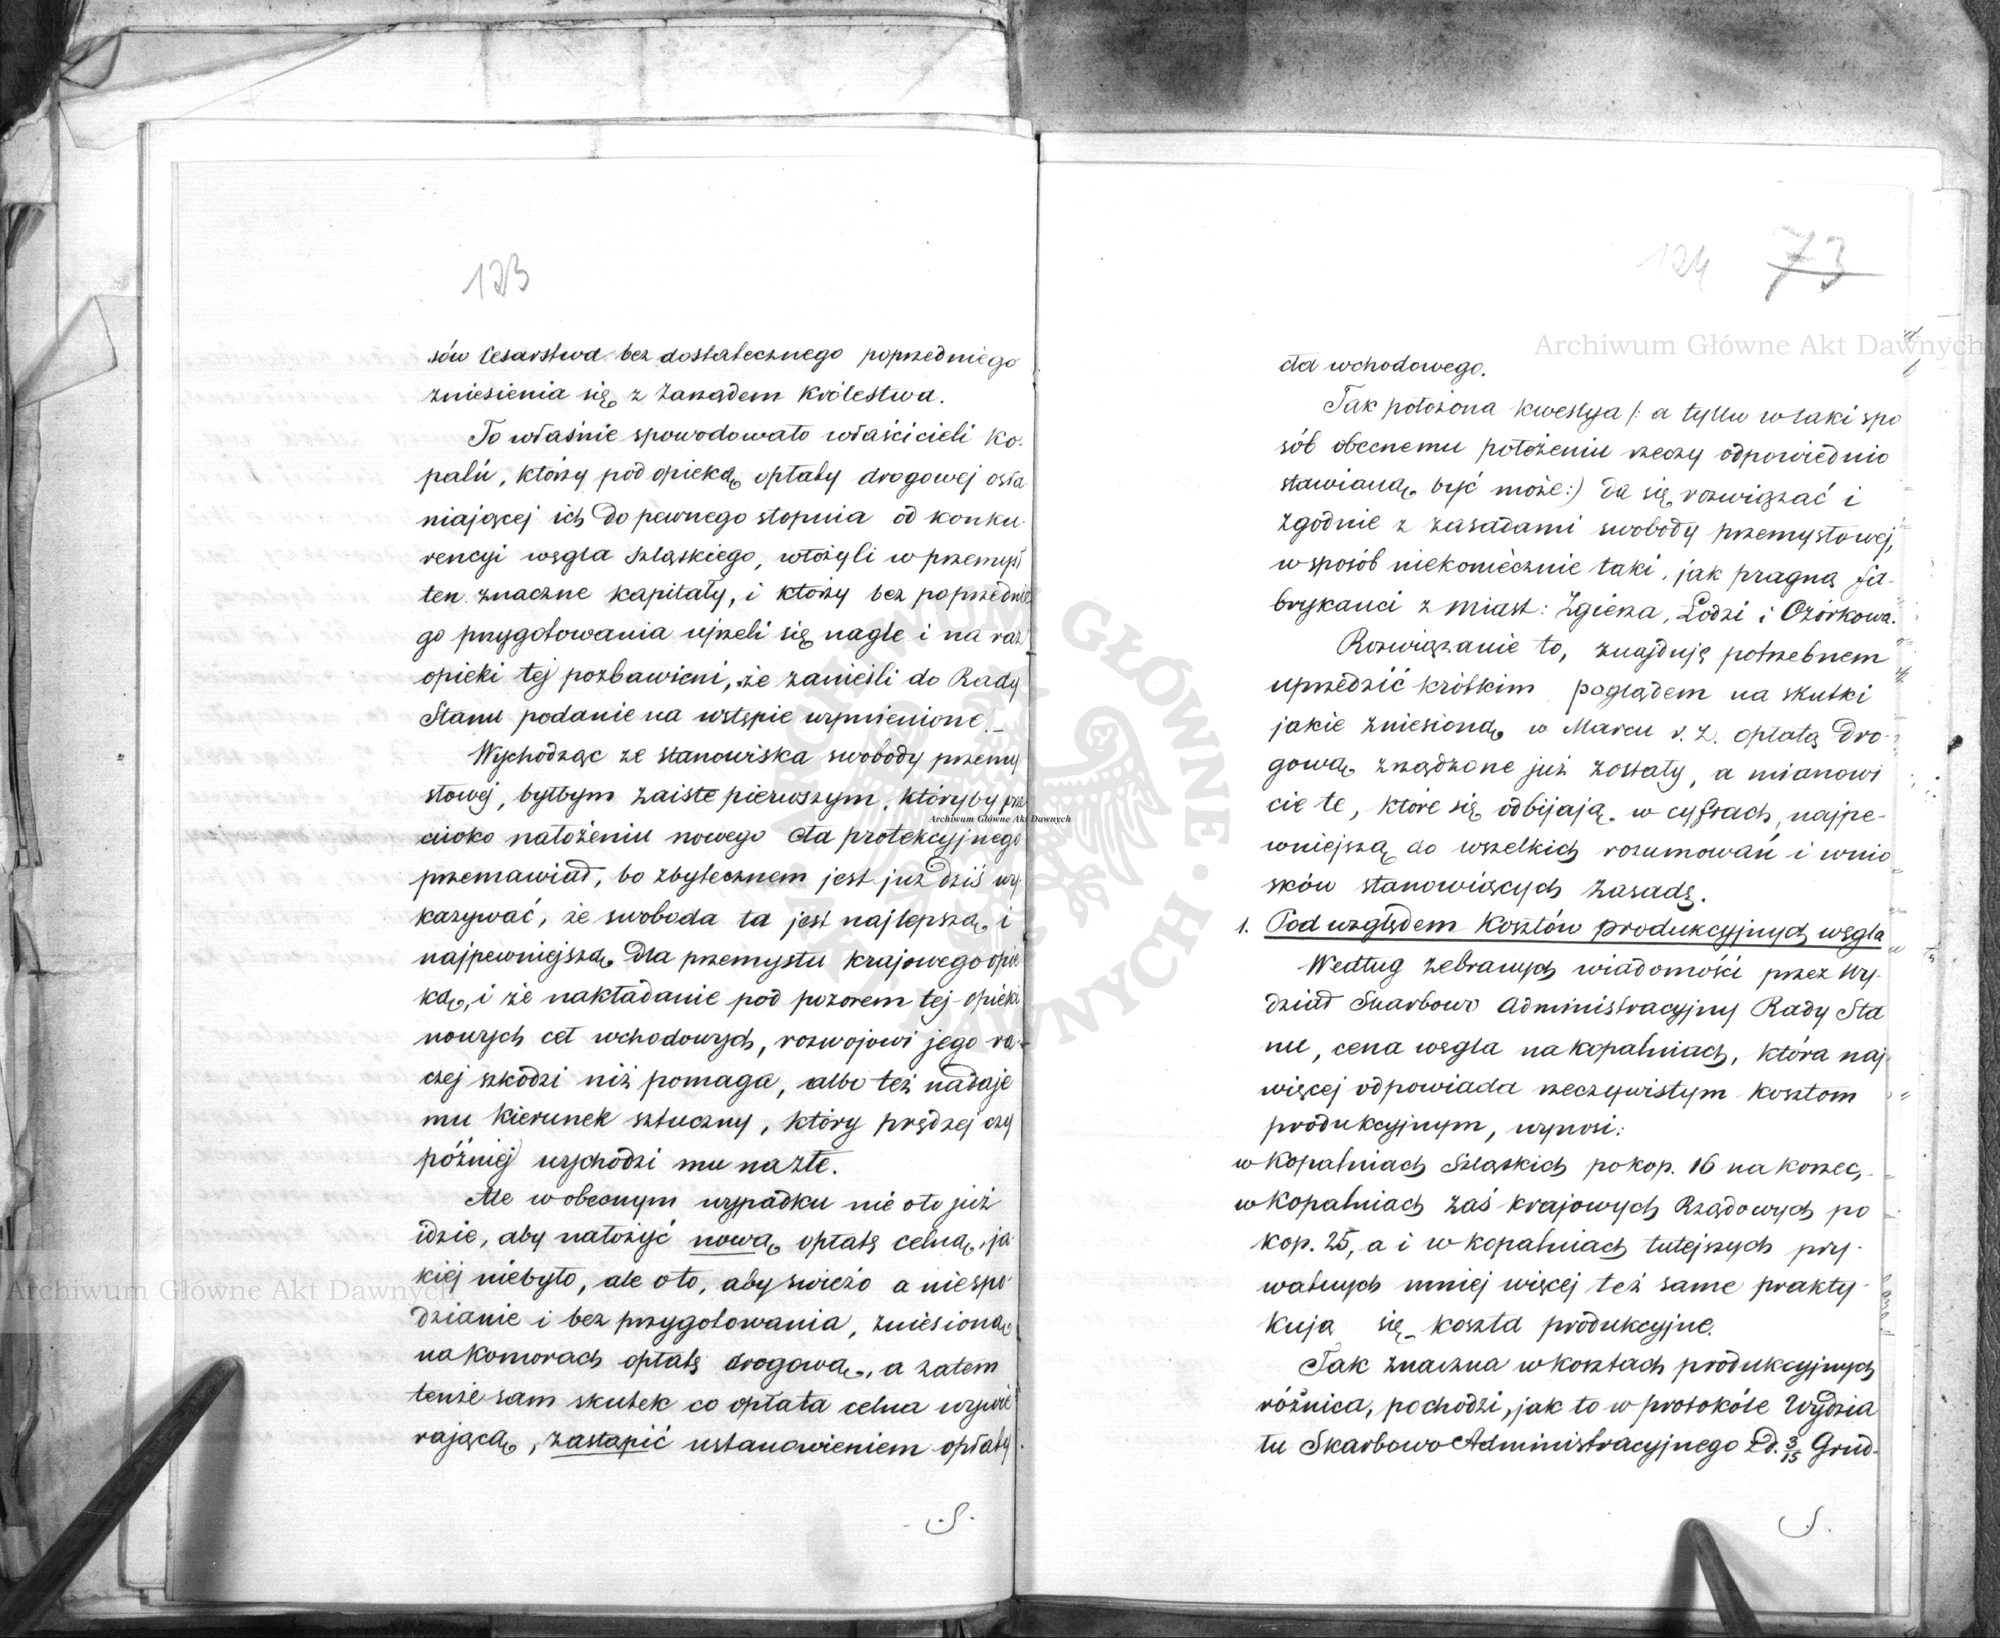 123
sów Cesarstwa bez dostatecznego poprzedniego
zniesienia się z Zarządem Królestwa.
To właśnie spowodowało właścicieli ko-
palń, którzy pod opieką opłaty drogowej osła-
niającej ich do pewnego stopnia od konku-
rencyi węgla Szląskiego, włożyli w przemysł
ten znaczne kapitały, i którzy bez poprzednie
go przygotowania ujrzeli się nagle i na raz
opieki tej pozbawieni, że zanieśli do Rady
Stanu podanie na wstępie wymienione.
Wychodząc ze stanowiska swobody przemy
słowej, byłbym zaiste pierwszym, któryby prze
ciwko nałożeniu nowego cła protekcyjnego
przemawiał, bo zbytecznem jest już dziś wy-
kazywać, że swoboda ta jest najlepszą i
najpewniejszą dla przemysłu krajowego opie
ką, i że nakładanie pod pozorem tej opieki
nowych ceł wchodowych, rozwojowi jego ra-
czej szkodzi niż pomaga, albo też nadaje
mu kierunek sztuczny, który prędzej czy
później wychodzi mu na złe.
Ale w obecnym wypadku nie oto już
idzie, aby nałożyć nową opłatę celną, ja-
kiej niebyło, ale oto, aby swieżo a niespo-
dzianie i bez przygotowania, zniesioną
na komorach opłatę drogową, a zatem
tenże sam skutek co opłata celna wywie
rającą, zastąpić ustanowieniem opłaty
S.
124 73
cła wchodowego.
Tak położona kwestya /: a tylko w taki spo
sób obecnemu położeniu rzeczy odpowiednio
stawianą być może :/ da się rozwiązać i
zgodnie z zasadami swobody przemysłowej,
w sposób niekoniecznie taki, jak pragną fa-
brykanci z miast: Zgierza, Łodzi i Ozorkowa.
Rozwiązanie to, znajduję potrzebnem
uprzedzić krótkim poglądem na skutki
jakie zniesioną w Marcu r. z. opłatą dro-
gową zrządzone już zostały, a mianowi
cie te, które się odbijają w cyfrach, najpe-
wniejszą do wszelkich rozumowań i wnio
sków stanowiących zasadę.
1. Pod względem kosztów produkcyjnych węgla
Według zebranych wiadomości przez Wy-
dział Skarbowo Administracyjny Rady Sta
nu, cena węgla na kopalniach, która naj
więcej odpowiada rzeczywistym kosztom
produkcyjnym, wynosi:
w kopalniach Szląskich po kop. 16 na korzec,
w kopalniach zaś krajowych Rządowych po
kop. 25, a i w kopalniach tutejszych pry-
watnych mniej więcej też same prakty-
kują się koszta produkcyjne.
Tak znaczna w kosztach produkcyjnych
różnica, pochodzi, jak to w protokóle Wydzia
łu Skarbowo Administracyjnego z d. 3/15 Grud-
S.
Archiwum Główne Akt Dawnych
Archiwum Główne Akt Dawnych
Archiwum Główne Akt Dawnych
ARCHIWUM GŁÓWNE AKT DAWNYCH